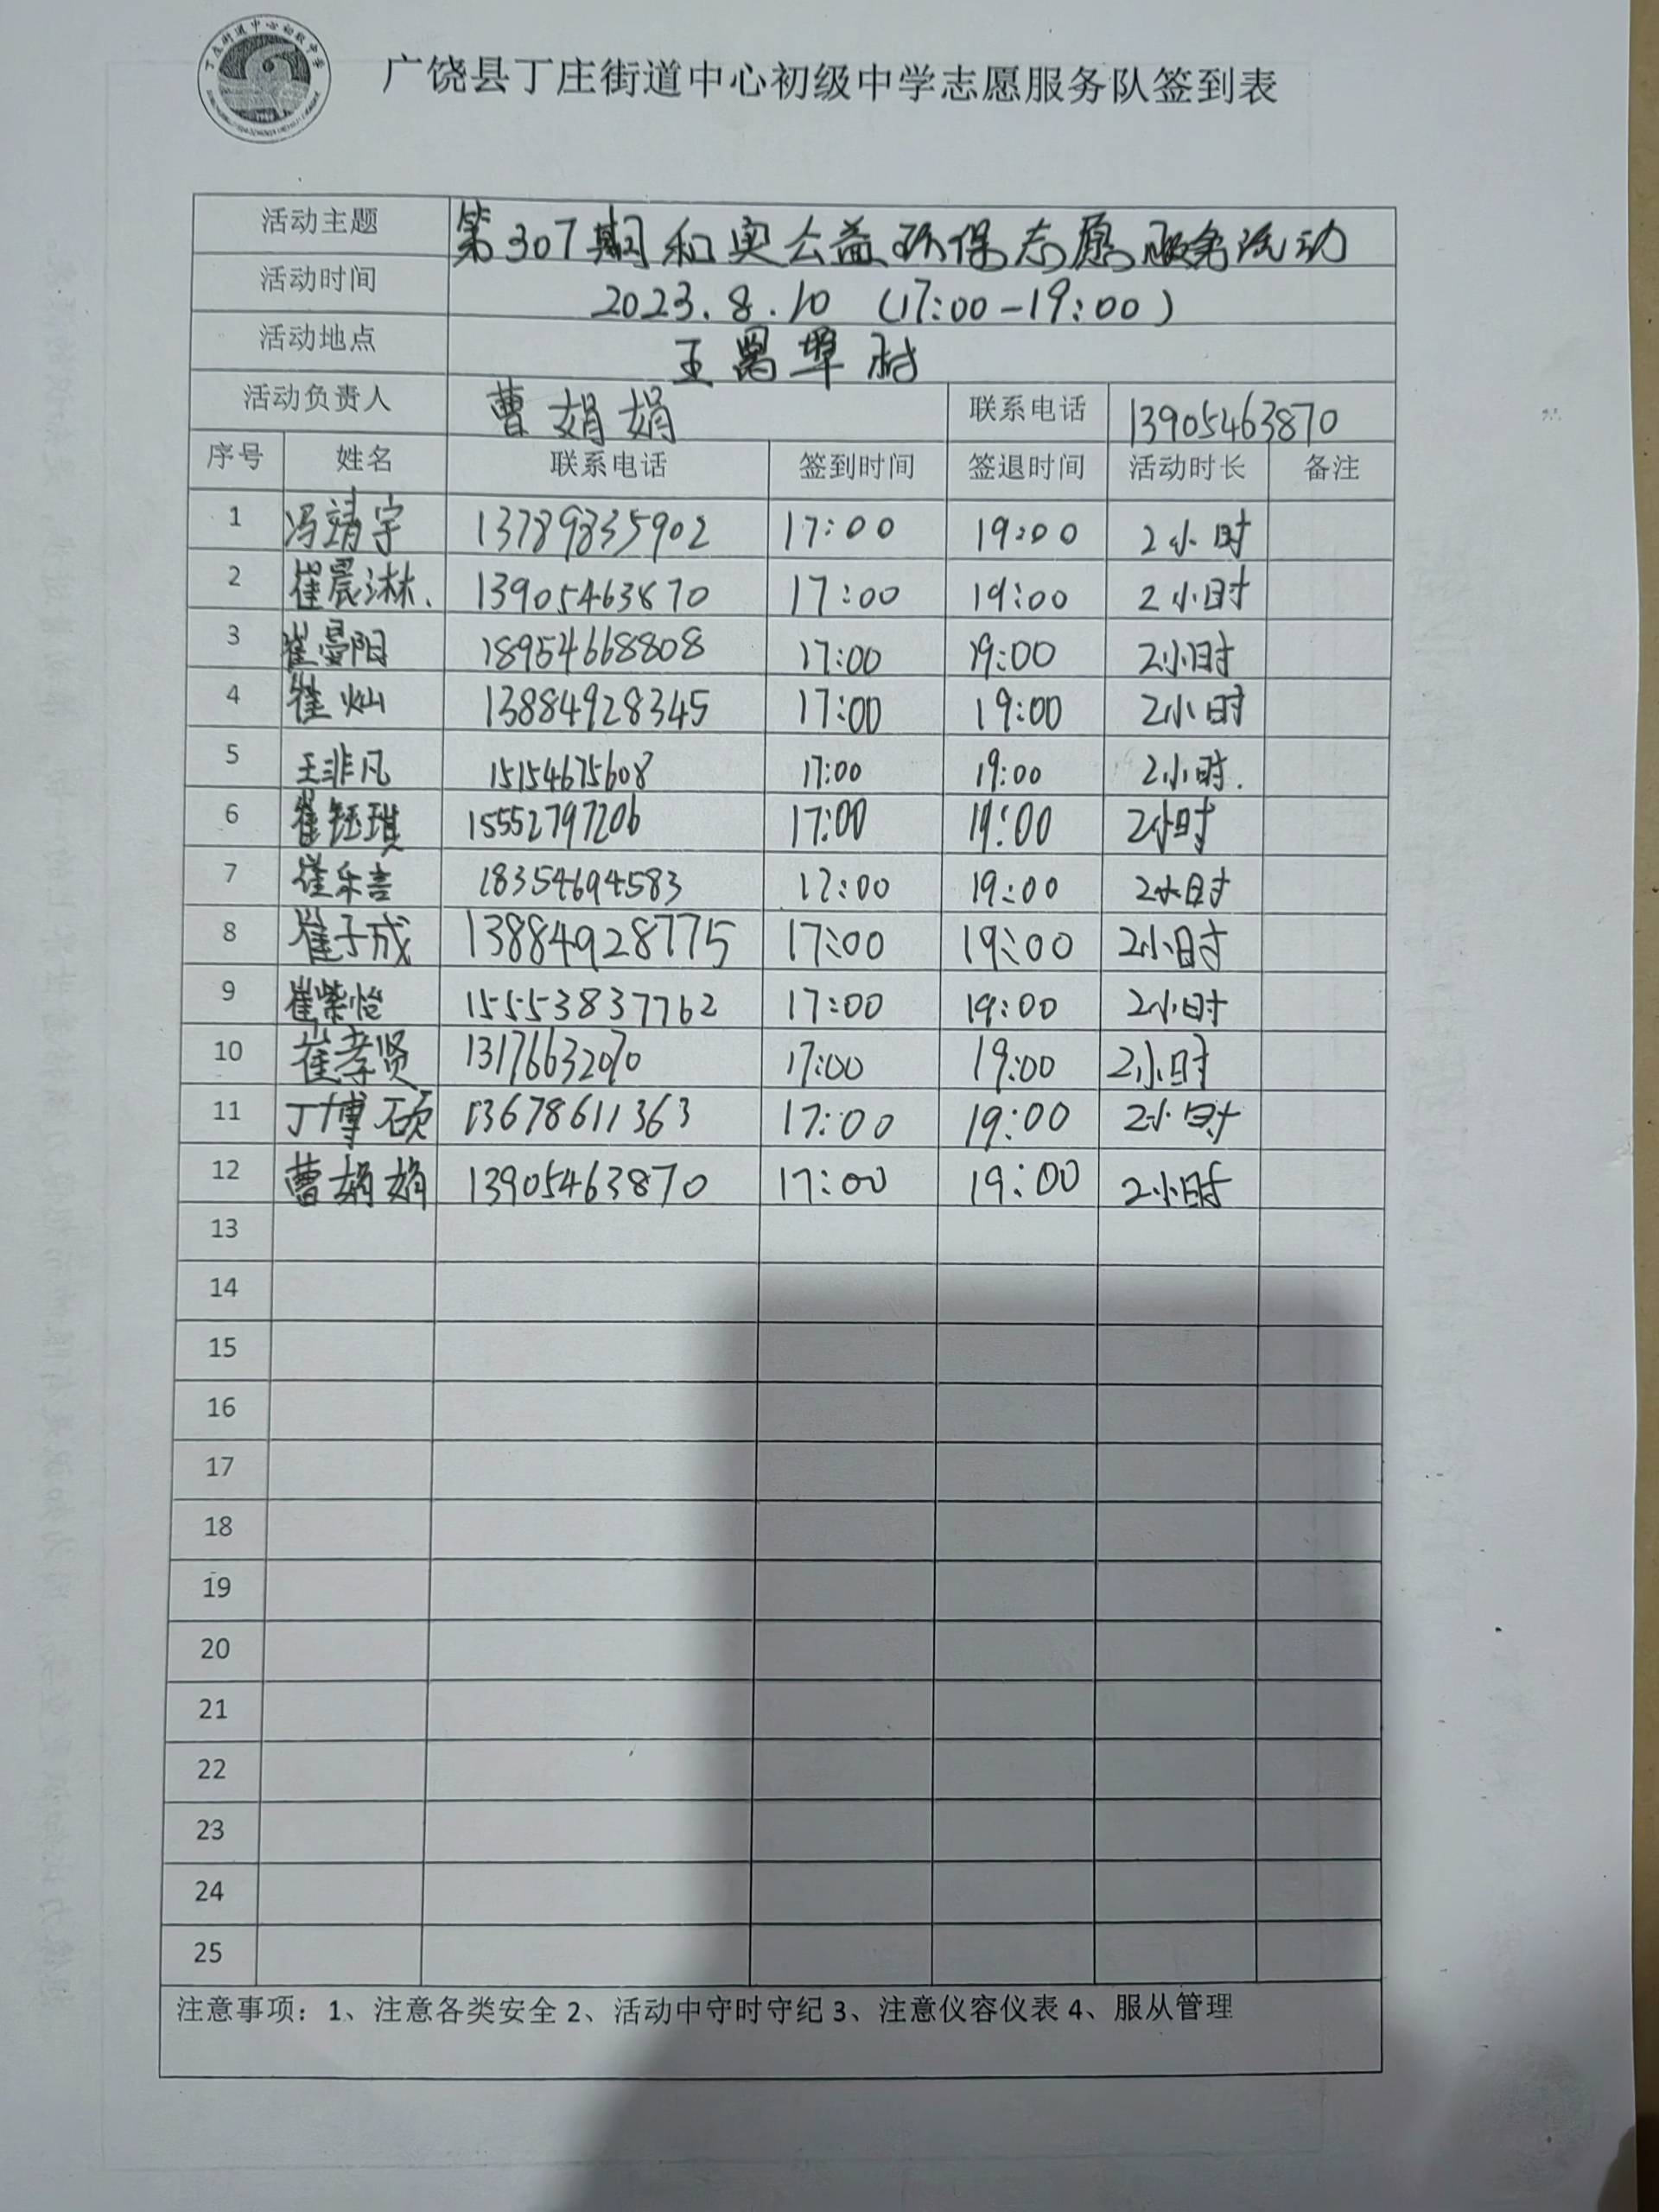 丁庄街道中心初级中学
广饶县丁庄街道中心初级中学志愿服务队签到表
活动主题 第307期和奥公益环保志愿服务活动
活动时间 2023.8.10 (17:00-19:00)
活动地点 王署埠村
活动负责人 曹娟娟 联系电话 13905463870
序号 姓名 联系电话 签到时间 签退时间 活动时长 备注
1 冯靖宇 13789835902 17:00 19:00 2小时
2 崔晨淋 13905463870 17:00 19:00 2小时
3 崔晏阳 18954668808 17:00 19:00 2小时
4 崔灿 13884928345 17:00 19:00 2小时
5 王非凡 15154675608 17:00 19:00 2小时.
6 崔钰琪 15552797206 17:00 19:00 2小时
7 崔乐言 18354694583 17:00 19:00 2小时
8 崔子成 13884928775 17:00 19:00 2小时
9 崔紫怡 15553837762 17:00 19:00 2小时
10 崔孝贤 17:00 19:00 2小时
11 丁博硕 13678611363 17:00 19:00 2小时
12 曹娟娟 13905463870 17:00 19:00 2小时
13
14
15
16
17
18
19
20
21
22
23
24
25
注意事项：1、注意各类安全 2、活动中守时守纪 3、注意仪容仪表 4、服从管理